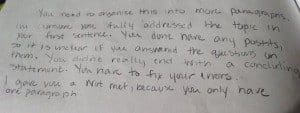 You need to organise this into more paragraphs.
I'm unsure you fully addressed the topic in
your first sentence. You done have any postits,
so it is unclear if you answered the questions on
them. You didn't really end with a concluding
statement. You have to fix your errors.
I gave you a Not met, because you only have
one paragraph